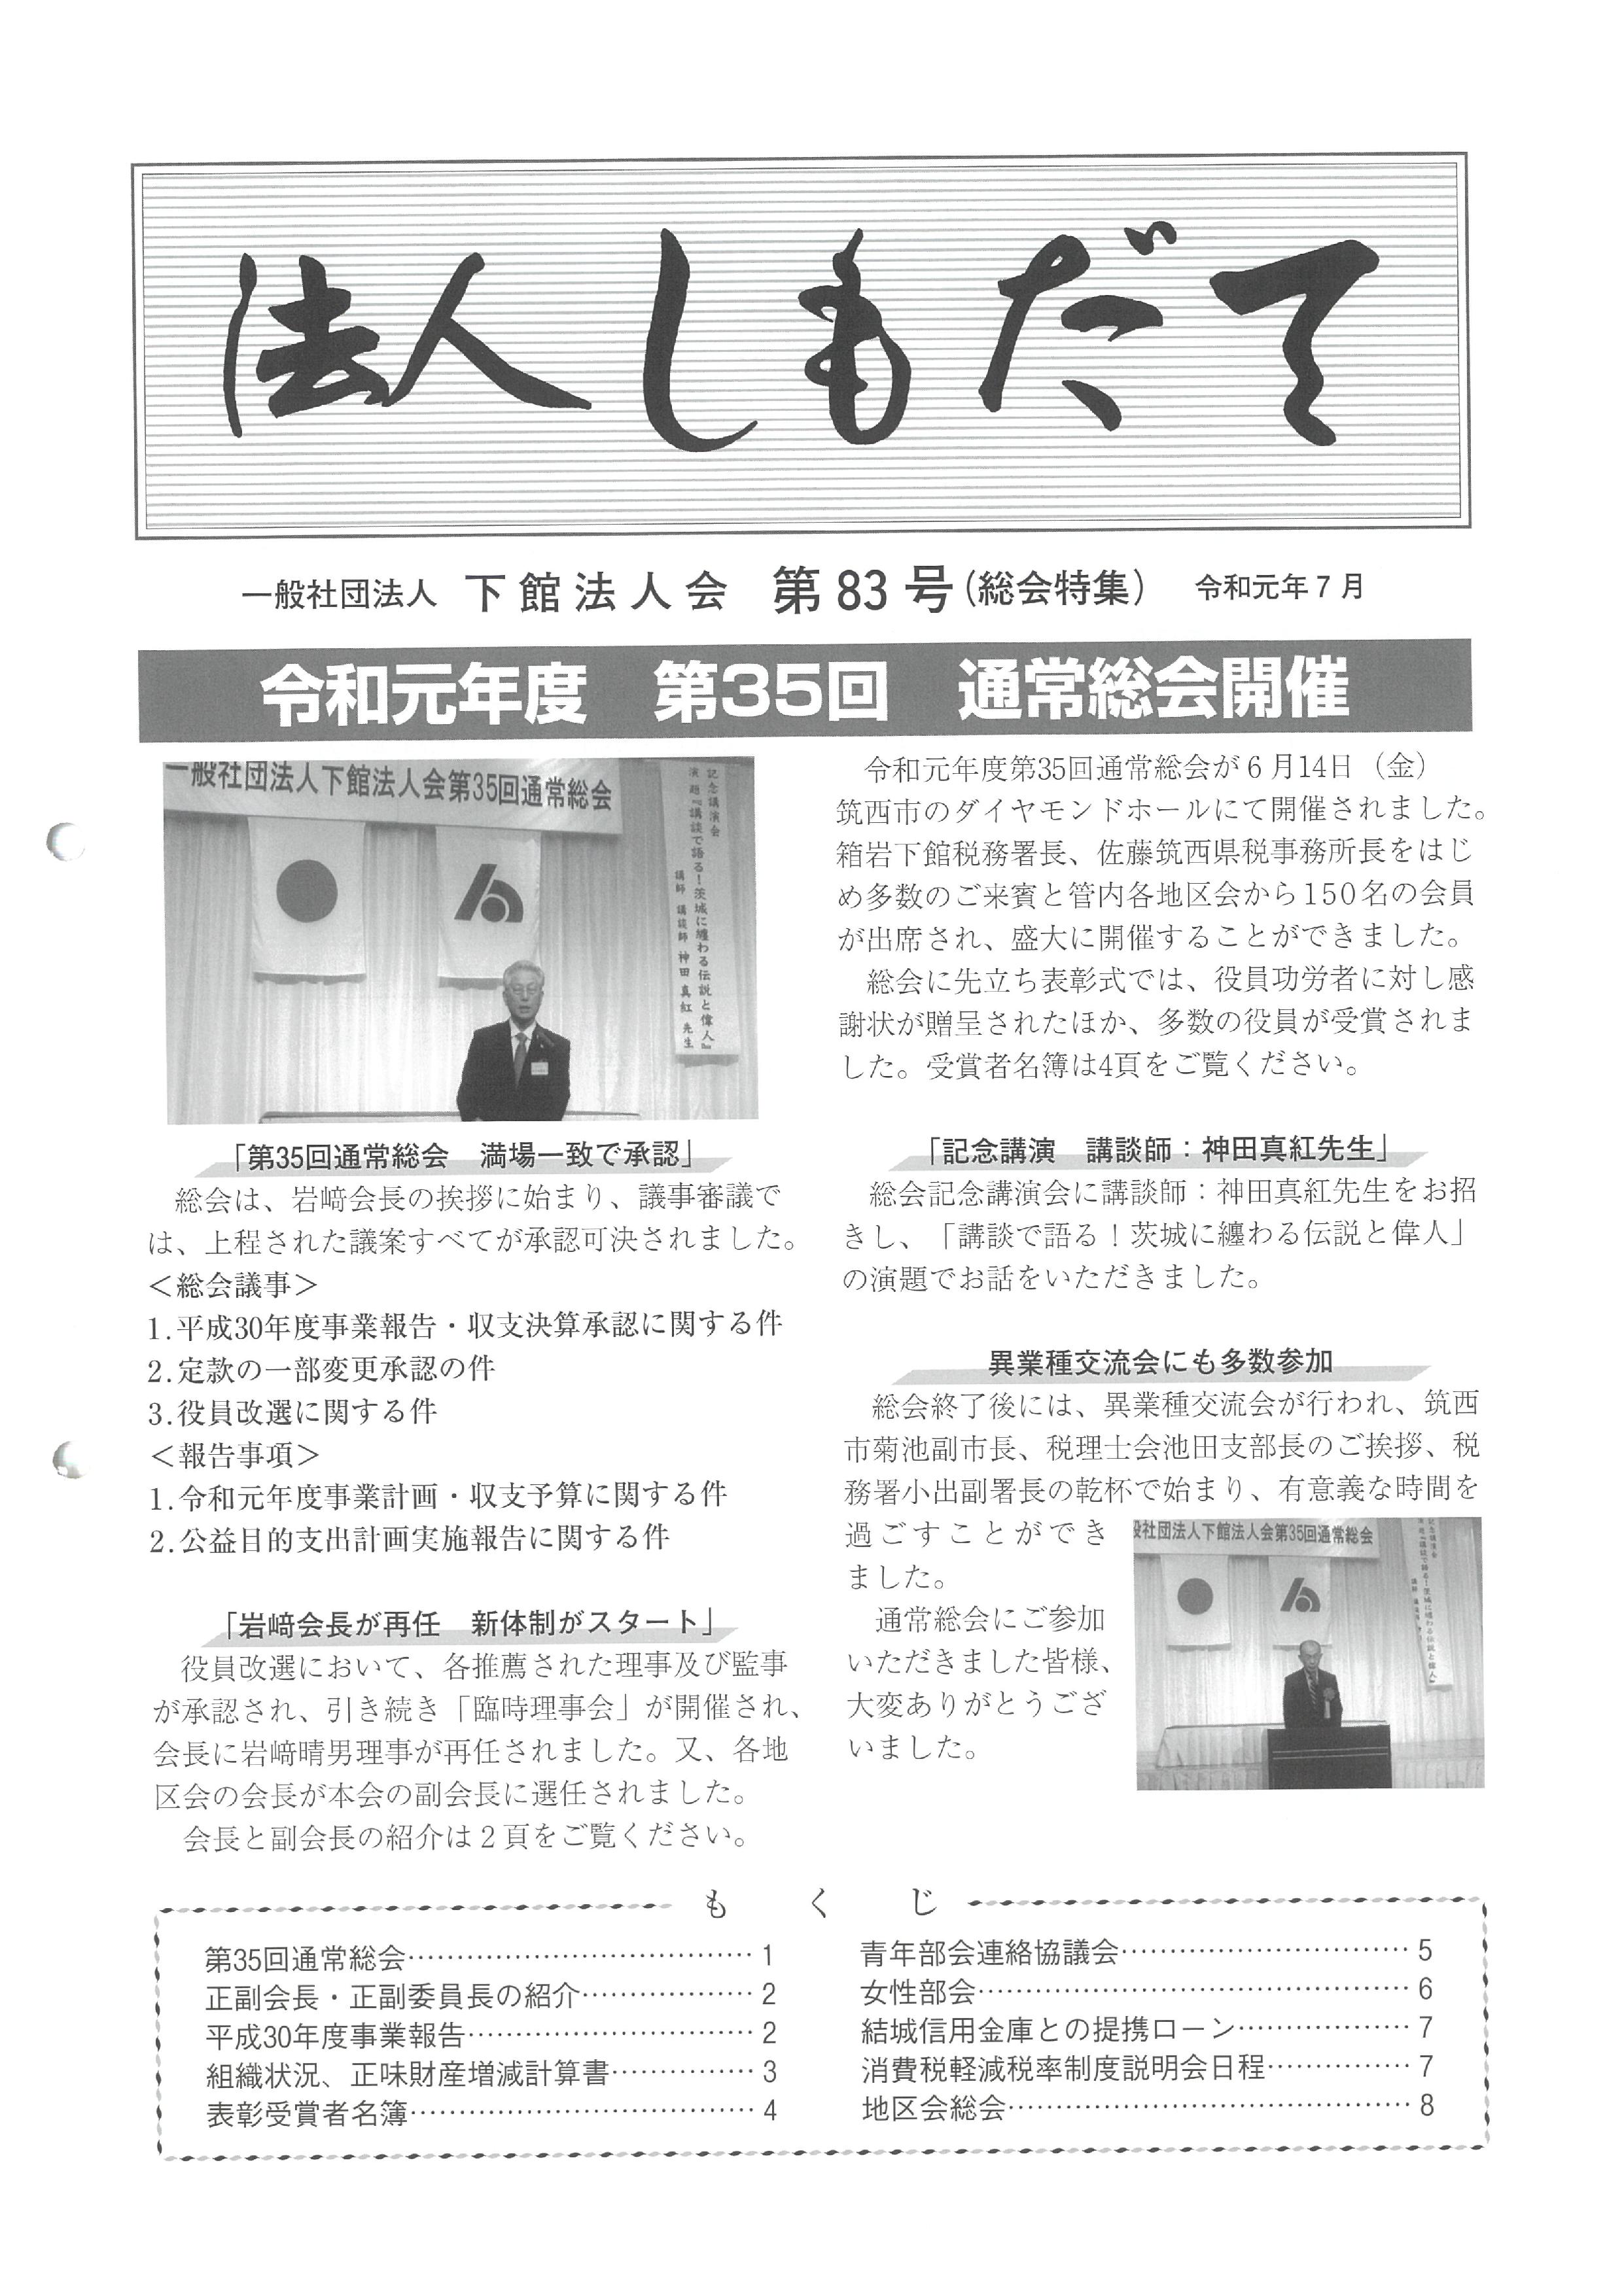 法人しもだて
一般社団法人 下館法人会 第83号(総会特集) 令和元年7月
令和元年度 第35回 通常総会開催
一般社団法人下館法人会第35回通常総会
記念講演会
演題『講談で語る!茨城に纏わる伝説と偉人』
講師 講談師 神田真紅 先生
「第35回通常総会 満場一致で承認」
総会は、岩﨑会長の挨拶に始まり、議事審議で
は、上程された議案すべてが承認可決されました。
＜総会議事＞
1.平成30年度事業報告・収支決算承認に関する件
2.定款の一部変更承認の件
3.役員改選に関する件
＜報告事項＞
1.令和元年度事業計画・収支予算に関する件
2.公益目的支出計画実施報告に関する件
「岩﨑会長が再任 新体制がスタート」
役員改選において、各推薦された理事及び監事
が承認され、引き続き「臨時理事会」が開催され、
会長に岩﨑晴男理事が再任されました。又、各地
区会の会長が本会の副会長に選任されました。
会長と副会長の紹介は2頁をご覧ください。
令和元年度第35回通常総会が6月14日（金）
筑西市のダイヤモンドホールにて開催されました。
箱岩下館税務署長、佐藤筑西県税事務所長をはじ
め多数のご来賓と管内各地区会から150名の会員
が出席され、盛大に開催することができました。
総会に先立ち表彰式では、役員功労者に対し感
謝状が贈呈されたほか、多数の役員が受賞されま
した。受賞者名簿は4頁をご覧ください。
「記念講演 講談師：神田真紅先生」
総会記念講演会に講談師：神田真紅先生をお招
きし、「講談で語る！茨城に纏わる伝説と偉人」
の演題でお話をいただきました。
異業種交流会にも多数参加
総会終了後には、異業種交流会が行われ、筑西
市菊池副市長、税理士会池田支部長のご挨拶、税
務署小出副署長の乾杯で始まり、有意義な時間を
過ごすことができ
ました。
通常総会にご参加
いただきました皆様、
大変ありがとうござ
いました。
般社団法人下館法人会第35回通常総会
記念講演会
演題『講談で語る!茨城に纏わる伝説と偉人』
もくじ
第35回通常総会………………………………1
正副会長・正副委員長の紹介………………2
平成30年度事業報告…………………………2
組織状況、正味財産増減計算書……………3
表彰受賞者名簿………………………………4
青年部会連絡協議会…………………………5
女性部会………………………………………6
結城信用金庫との提携ローン………………7
消費税軽減税率制度説明会日程……………7
地区会総会……………………………………8